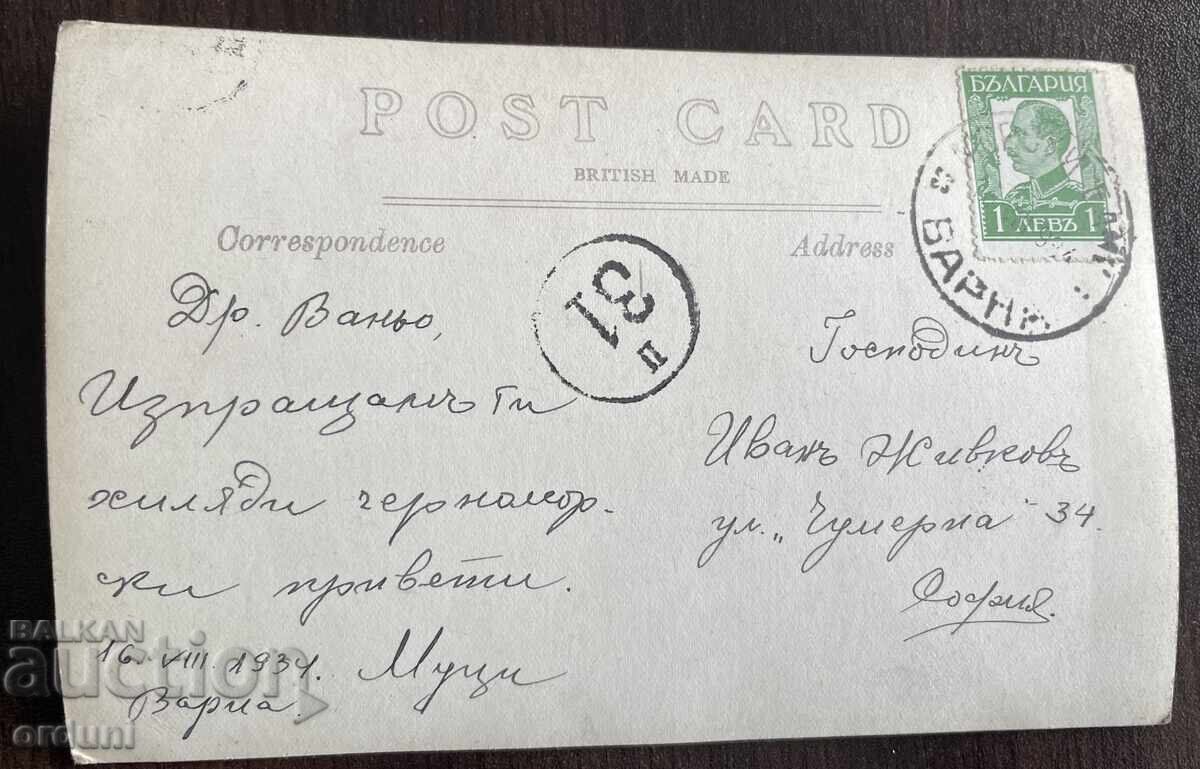 POST CARD
BRITISH MADE
Correspondence
Address
БЪЛГАРИЯ
1 ЛЕВЪ 1
ВАРНА
31
п
Др. Ваньо,
Изпращамъ ти
хиляди черномор-
ски привети.
16. VIII. 1934. Муци
Варна.
Господинъ
Иванъ Живковъ
ул. „Чумерна“ 34.
София.
BALKAN
auction
orduni